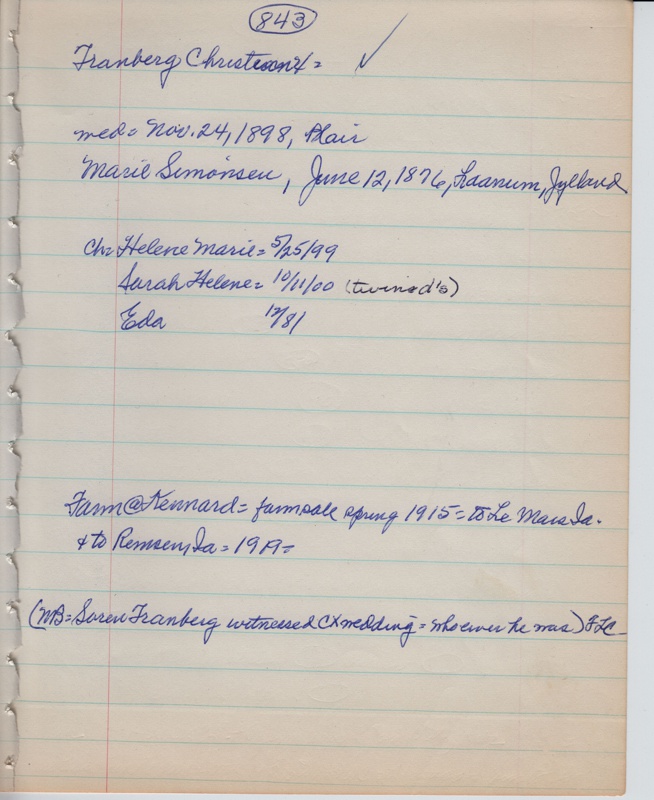 843
Franberg Christian X =
med = Nov. 24, 1898, Blair
Marie Simonsen, June 12, 1876, Laanum, Jylland
Ch: Helene Marie = 5/25/99
Sarah Helene = 10/11/00 (twin d's)
Eda 12/81
Farm @ Kennard = farm sale spring 1915 = to Le Mars Ia.
& to Remsen, Ia = 1919 =
(NB = Soren Franberg witnessed CX wedding = whoever he was)